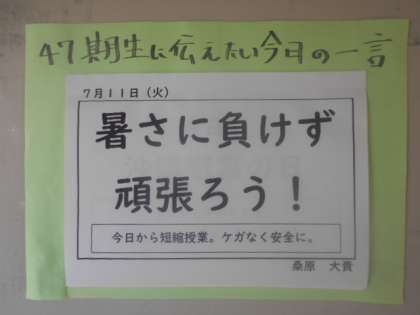 47期生に伝えたい今日の一言
7月11日（火）
暑さに負けず
頑張ろう！
今日から短縮授業。ケガなく安全に。
桑原　大貴